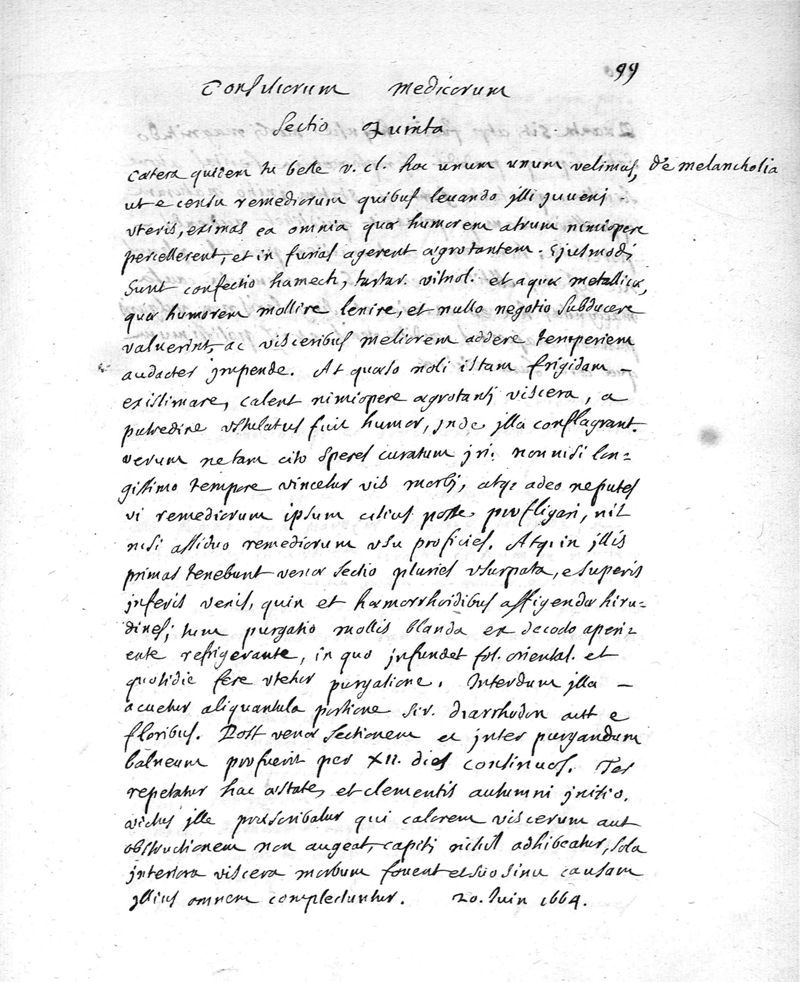 99
Consiliorum medicorum
Sectio Quinta
De melancholia
Cætera quidem tu belle v. cl. hoc unum unum velimus,
ut e censu remediorum quibus levando illi juveni
uteris, eximas ea omnia quæ humorem atrum nimiopere
percellerent, et in furias agerent ægrotantem. Ejusmodi
sunt confectio hamech, tartar. vitriol. et aqua metallica,
quæ humorem mollire lenire, et nullo negotio subducere
valuerint, ac visceribus meliorem addere temperiem
audacter impende. At quæso noli istam frigidam –
existimare, calent nimiopere ægrotanti viscera, a
putredine ustulatus fuit humor, inde illa conflagrant.
verum ne tam cito speres curatum iri. non nisi lon=
gissimo tempore vincetur vis morbi, atq; adeo ne putes
vi remediorum ipsum citius posse profligari, nil
nisi assiduo remediorum usu proficies. Atqui in illis
primas tenebunt venæ sectio pluries usurpata, e superis
inferis venis, quin et hæmorrhoidibus affigendæ hiru=
dines; tum purgatio mollis blanda ex decocto aperi=
ente refrigerante, in quo infundet fol. oriental. et
quotidie fere utetur purgatione. Interdum illa –
acuetur aliquantula portione sir. diarrhodon aut e
floribus. Post venæ sectionem et inter purgandum
balneum profuerit per XII. dies continuos. Ter
repetatur hac æstate, et clementis autumni initio.
victus ille præscribatur qui calorem viscerum aut
obstructionem non augeat, capiti nihil adhibeatur, sola
interiora viscera morbum fovent et suo sinu causam
illius omnem complectuntur. 20. Juin 1664.